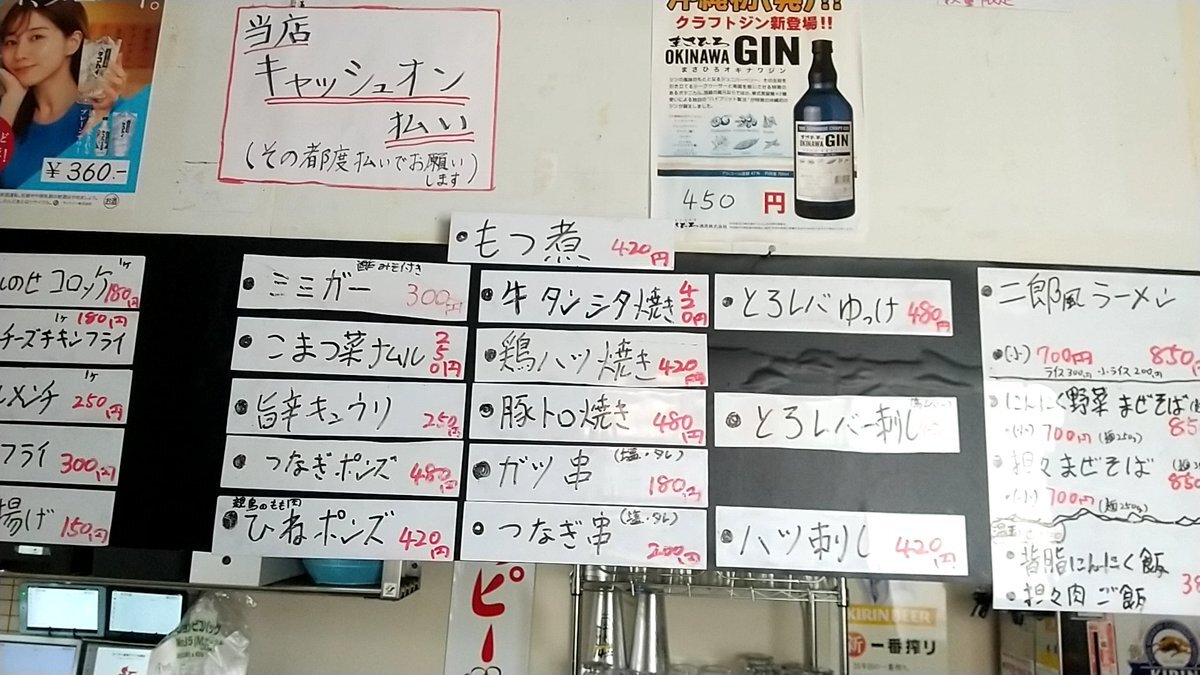 ¥360.-
当店
キャッシュオン
払い
(その都度払いでお願い
します)
クラフトジン新登場!!
まさひろ
OKINAWA GIN
まさひろオキナワジン
まさひろ
OKINAWA
GIN
450 円
・もつ煮 420円
コロッケ 1ケ 180円
1ケ 180円
チーズチキンフライ
メンチ 1ケ 250円
フライ 300円
揚げ 150円
酢みそ付き
・ミミガー 300円
・こまつ菜ナムル 250円
・旨辛キュウリ 250円
・つなぎポンズ 480円
親鳥のもも肉
・ひねポンズ 420円
・牛タンシタ焼き 420円
・鶏ハツ焼き 420円
・豚トロ焼き 480円
・ガツ串 (塩・タレ) 180円
・つなぎ串 (塩・タレ) 200円
・とろレバゆっけ 480円
・とろレバー刺し
・ハツ刺し 420円
・二郎風ラーメン
・(小) 700円 850
ライス300円 小ライス200円
・にんにく野菜まぜそば
・(小) 700円 (麺250g) 850
・担々まぜそば
850
・(小) 700円 (麺250g)
・背脂にんにく飯
・担々肉ご飯
38
ピー
KIRIN BEER
新 一番搾り
KIRIN